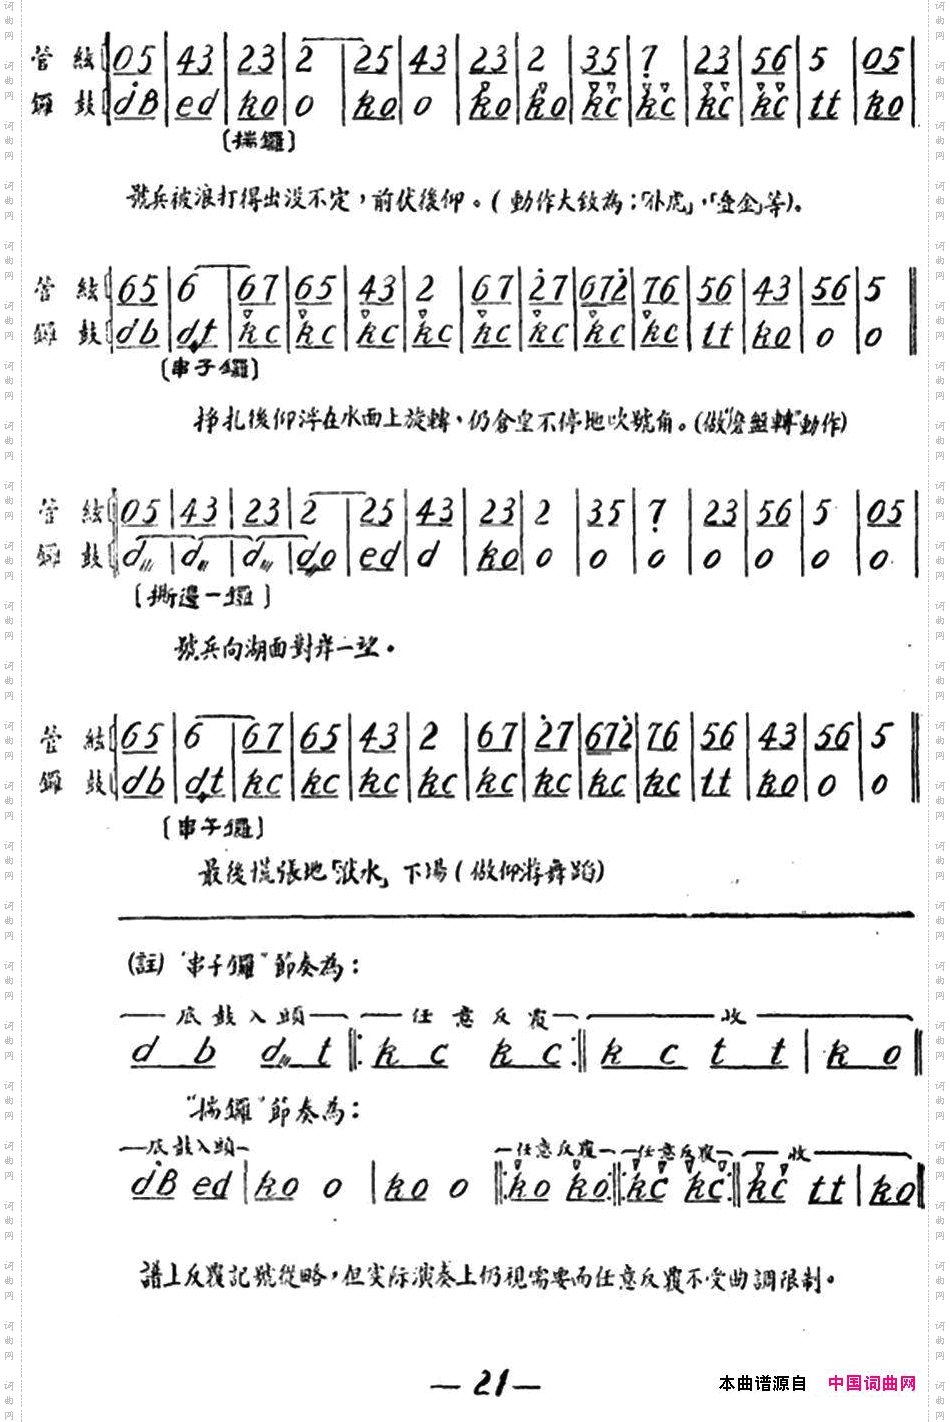 管 絃 05 | 43 | 23 | 2 | 25 | 43 | 23 | 2 | 35 | 7̣ | 23 | 56 | 5 | 05 |
鑼 鼓 dB | ed | ko | o | ko | o | ko | ko | kc | kc | kc | kc | tt | ko |
〔揣鑼〕
號兵被浪打得出没不定，前伏後仰。(動作大致為：「卧虎」，「壺金」等)。
管 絃 65 | 6 | 67 | 65 | 43 | 2 | 67 | 2̇7 | 672̇ | 76 | 56 | 43 | 56 | 5 ‖
鑼 鼓 db | dt | kc | kc | kc | kc | kc | kc | kc | kc | tt | ko | o | o ‖
〔串子鑼〕
掙扎後仰浮在水面上旋轉，仍倉皇不停地吹號角。(做"盤轉"動作)
管 絃 05 | 43 | 23 | 2 | 25 | 43 | 23 | 2 | 35 | 7̣ | 23 | 56 | 5 | 05 |
鑼 鼓 d/// | d/// | d/// | do | ed | d | ko | o | o | o | o | o | o | o |
〔撕邊一鑼〕
號兵向湖面對岸一望。
管 絃 65 | 6 | 67 | 65 | 43 | 2 | 67 | 2̇7 | 672̇ | 76 | 56 | 43 | 56 | 5 ‖
鑼 鼓 db | dt | kc | kc | kc | kc | kc | kc | kc | kc | tt | ko | o | o ‖
〔串子鑼〕
最後慌張地「水」下場(做仰游舞蹈)
(註)"串子鑼"節奏為：
底鼓入頭 任意反覆 收
d b d/// t ‖: k c k c :‖ k c t t | k o ‖
"揣鑼"節奏為：
底鼓入頭 任意反覆 任意反覆 收
dB ed | ko o | ko o ‖: ko ko :‖: kc kc :‖ kc tt | ko ‖
譜上反覆記號從略，但实际演奏上仍視需要而任意反覆不受曲調限制。
— 21 —
本曲谱源自 中国词曲网